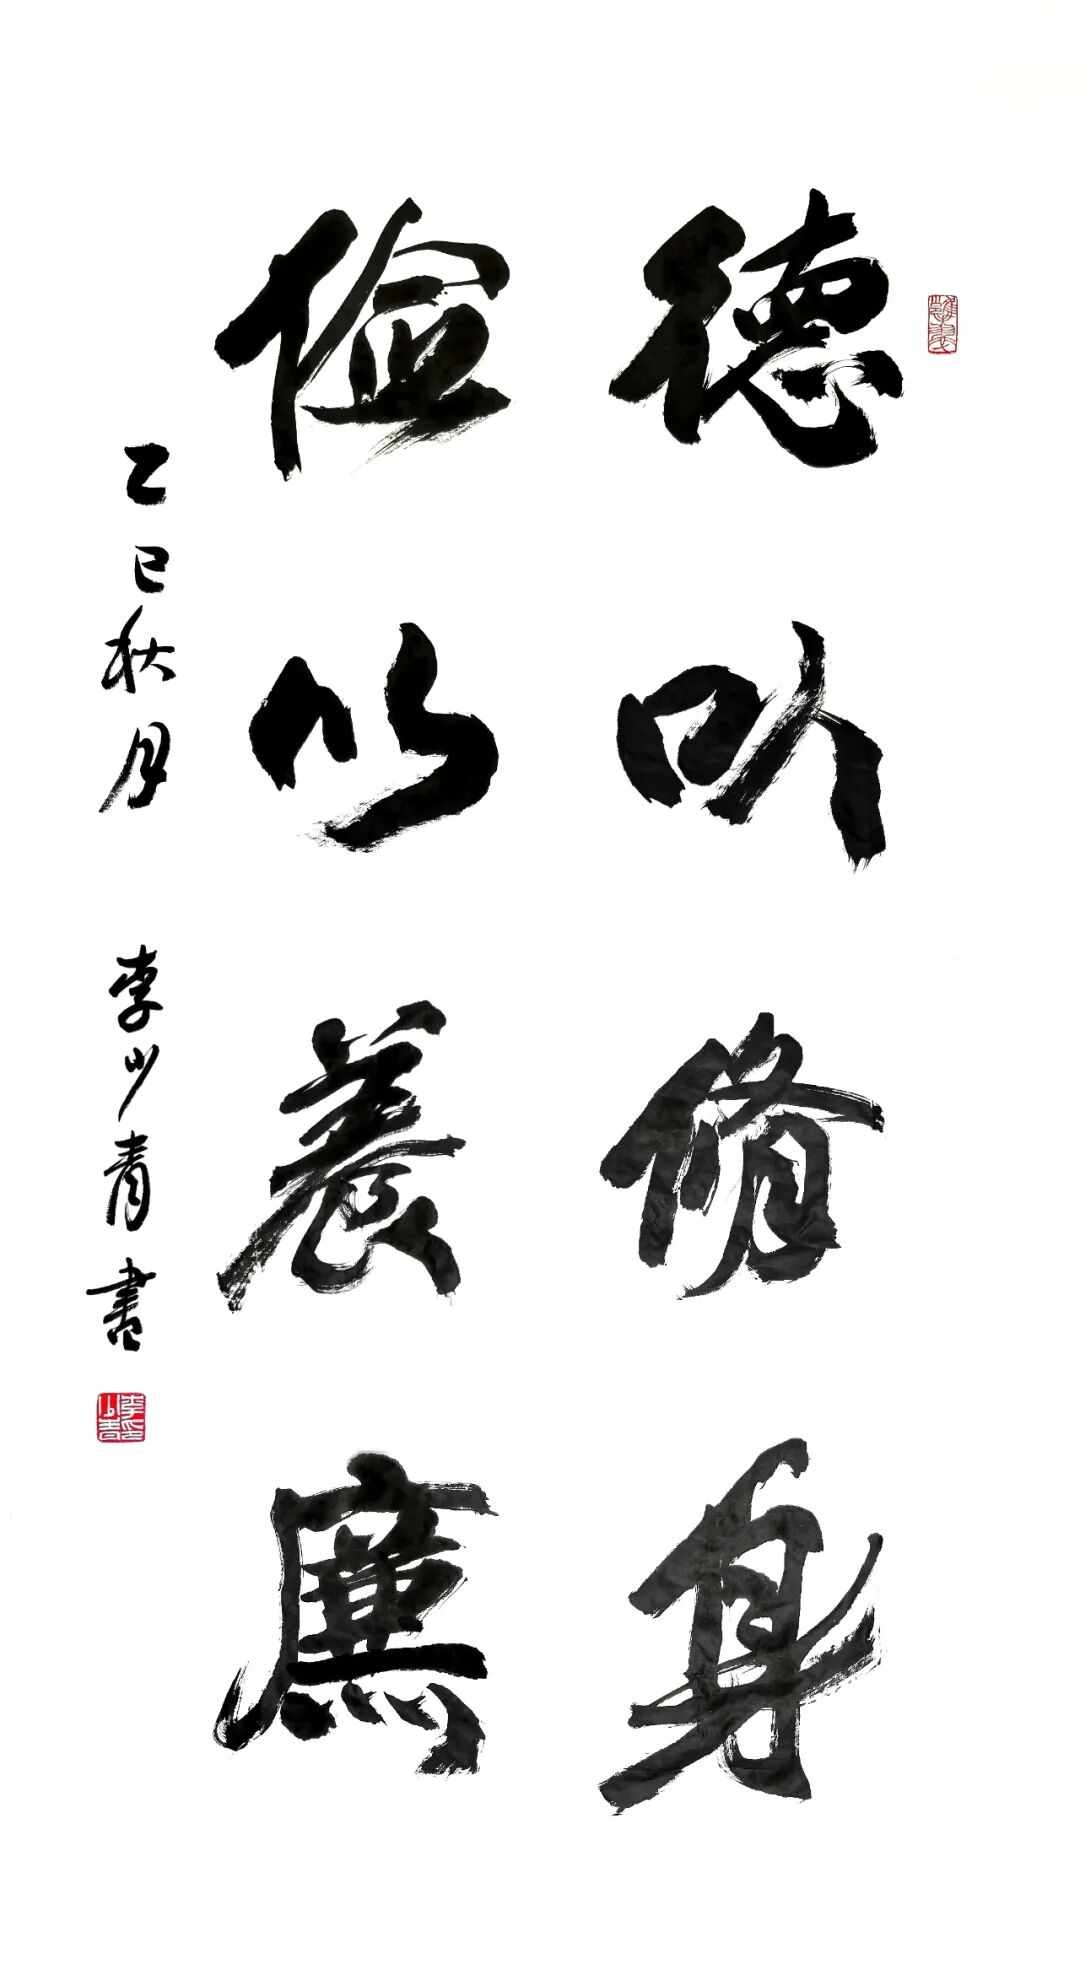 德以修身
儉以養廉
乙巳秋月 李少青書